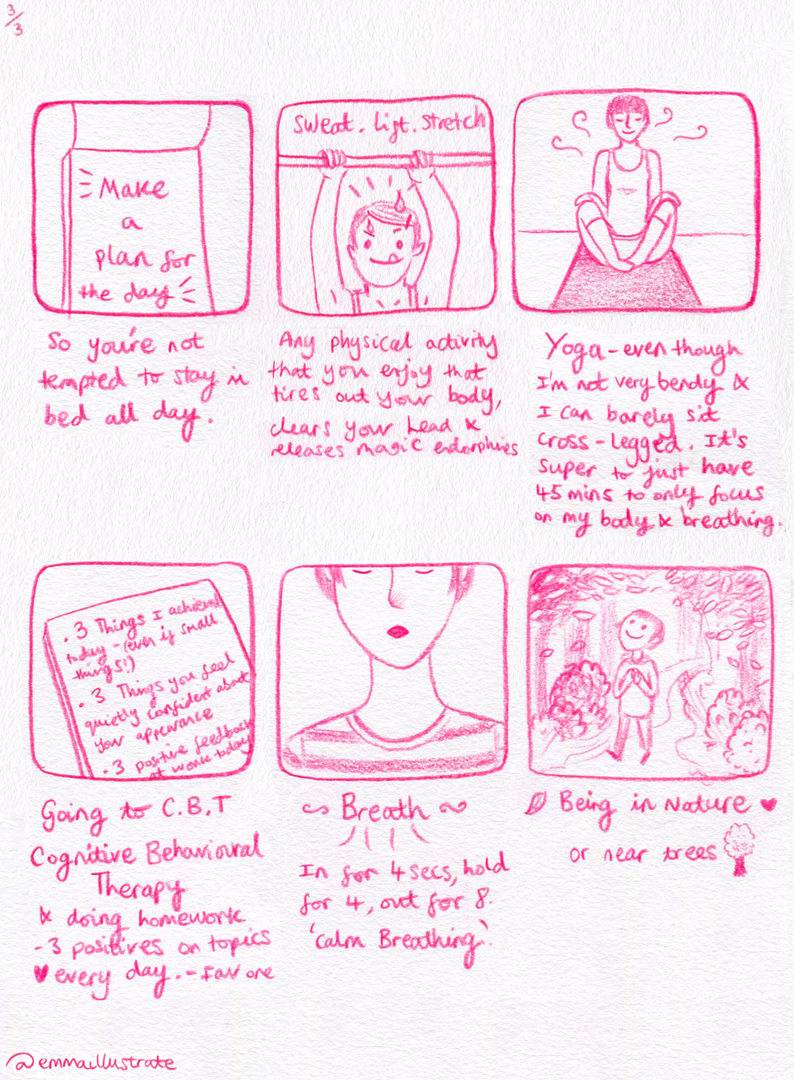 3/3
Make
a
plan for
the day
So you're not
tempted to stay in
bed all day.
Sweat. Lift. Stretch
Any physical activity
that you enjoy that
tires out your body,
clears your head &
releases magic endorphines
Yoga - even though
I'm not very bendy &
I can barely sit
cross-legged. It's
super to just have
45 mins to only focus
on my body & breathing.
. 3 Things I achieved
today - (even if small
things!)
. 3 Things you feel
quietly confident about
your appearance
. 3 positive feedback
at work today
Going to C.B.T
Cognitive Behavioural
Therapy
& doing homework
- 3 positives on topics
every day. - fav one
Breath
In for 4 secs, hold
for 4, out for 8.
'Calm Breathing'.
Being in Nature
or near trees
@emmaillustrate